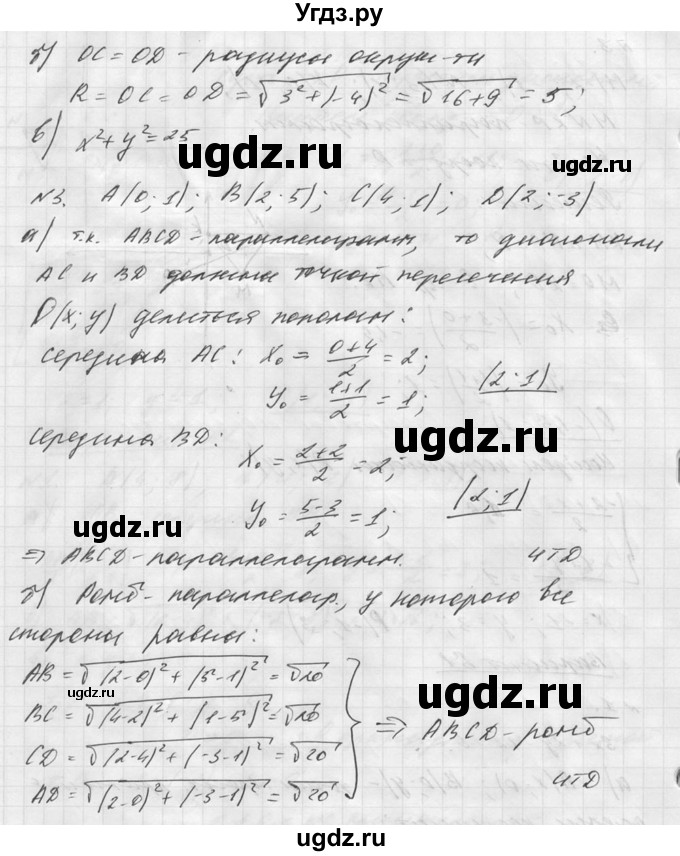 Угдз.ру
б) OC = OD - радиусы окруж-ти
R = OC = OD = √(3²+(-4)²) = √(16+9) = 5;
в) x²+y²=25
ugdz.ru
№3. A(0;1); B(2;5); C(4;1); D(2;-3)
а) т.к. ABCD - параллелограмм, то диагонали
AC и BD должны точкой пересечения
O(x;y) делиться пополам:
середина AC: X₀ = (0+4)/2 = 2;
Y₀ = (1+1)/2 = 1; (2;1)
ugdz.ru
середина BD:
X₀ = (2+2)/2 = 2;
Y₀ = (5-3)/2 = 1; (2;1)
ugdz.ru
⇒ ABCD - параллелограмм. ЧТД
б) Ромб - параллелогр., у которого все
стороны равны:
AB = √((2-0)²+(5-1)²) = √20
ugdz.ru
BC = √((4-2)²+(1-5)²) = √20
ugdz.ru
CD = √((2-4)²+(-3-1)²) = √20
AD = √((2-0)²+(-3-1)²) = √20
⇒ ABCD - ромб
ЧТД
ugdz.ru